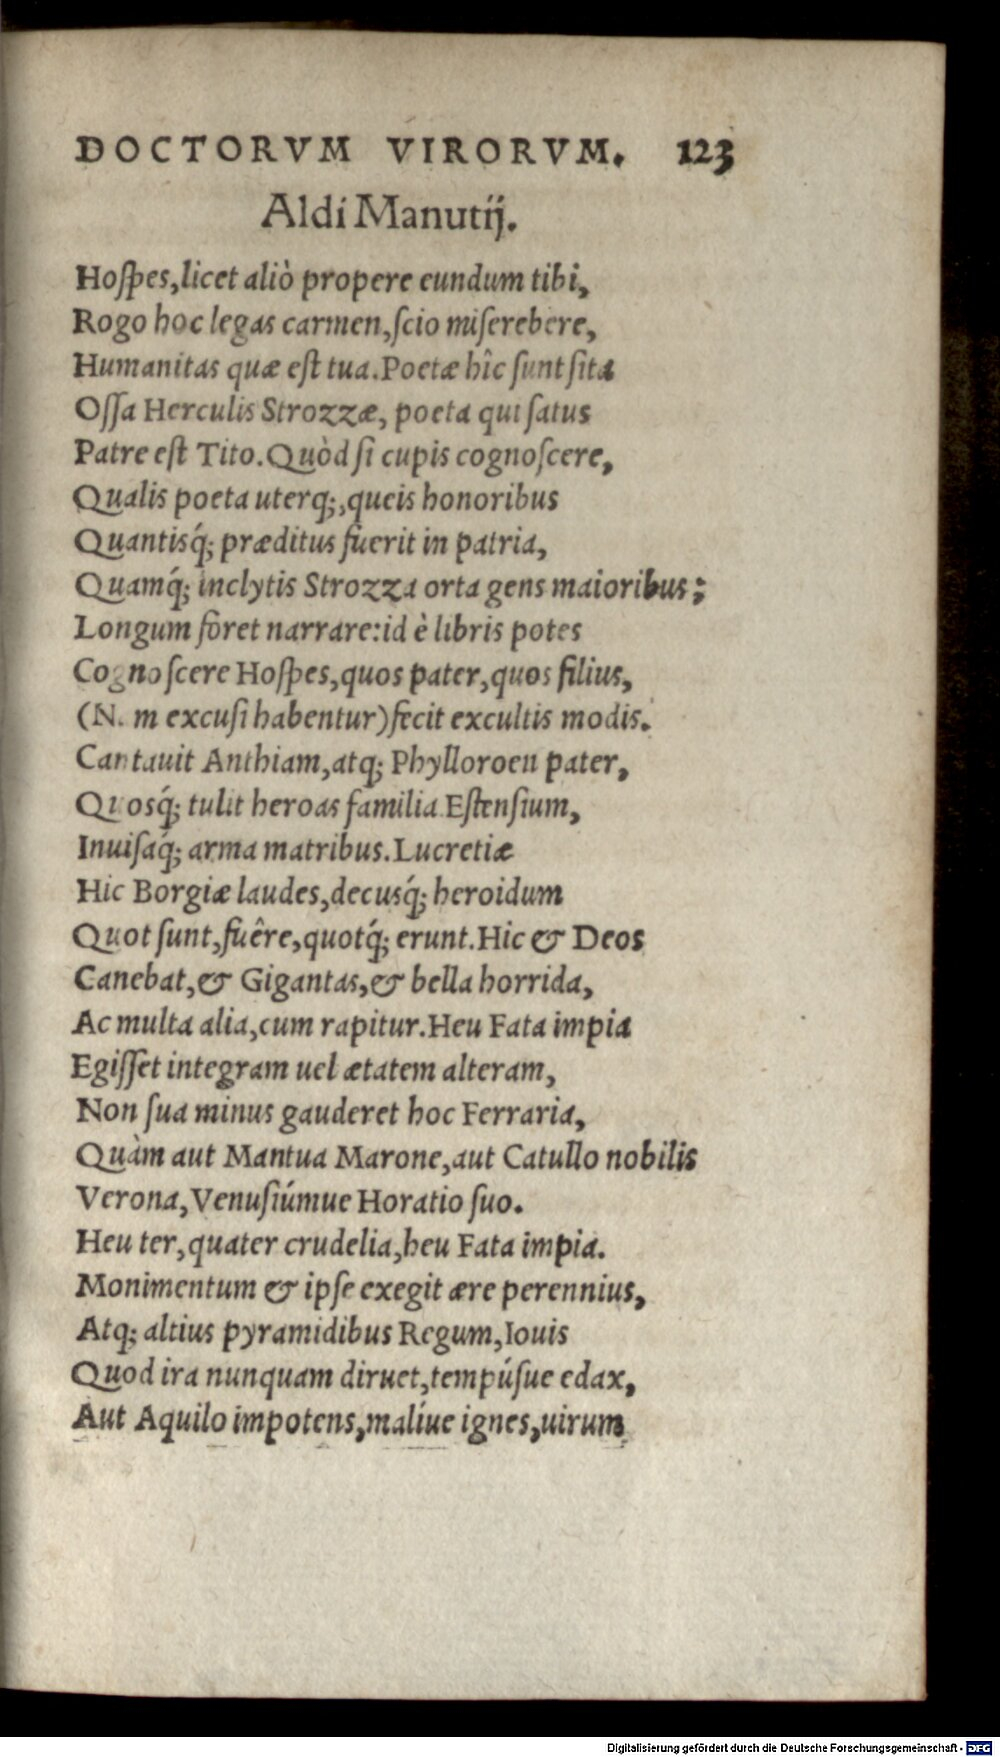 DOCTORVM VIRORVM. 123
Aldi Manutij.
Hoſpes, licet aliò propere eundum tibi,
Rogo hoc legas carmen, ſcio miſerebere,
Humanitas quæ eſt tua. Poetæ hîc ſunt ſita
Oſſa Herculis Strozzæ, poeta qui ſatus
Patre eſt Tito. Quòd ſi cupis cognoſcere,
Qualis poeta uterq;, queis honoribus
Quantisq́; præditus fuerit in patria,
Quamq́; inclytis Strozza orta gens maioribus;
Longum foret narrare: id è libris potes
Cognoſcere Hoſpes, quos pater, quos filius,
(N.m excuſi habentur) fecit excultis modis.
Cantauit Anthiam, atq; Phylloroen pater,
Quosq́; tulit heroas familia Eſtenſium,
Inuiſaq́; arma matribus. Lucretiæ
Hic Borgiæ laudes, decusq́; heroidum
Quot ſunt, fuêre, quotq́; erunt. Hic & Deos
Canebat, & Gigantas, & bella horrida,
Ac multa alia, cum rapitur. Heu Fata impia
Egiſſet integram uel ætatem alteram,
Non ſua minus gauderet hoc Ferraria,
Quàm aut Mantua Marone, aut Catullo nobilis
Verona, Venuſiúmue Horatio ſuo.
Heu ter, quater crudelia, heu Fata impia.
Monimentum & ipſe exegit ære perennius,
Atq; altius pyramidibus Regum, Iouis
Quod ira nunquam diruet, tempúſue edax,
Aut Aquilo impotens, malíue ignes, uirum
Digitalisierung gefördert durch die Deutsche Forschungsgemeinschaft - DFG